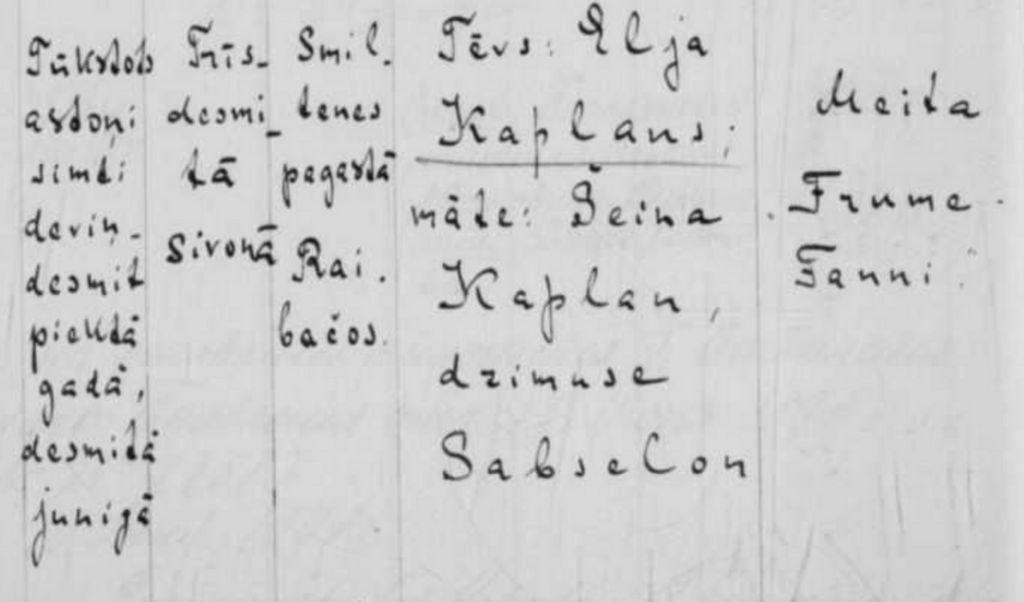 Tūkstots
astoņi
simti
deviņ-
desmit
piektā
gadā,
desmitā
junijā
Trīs-
desmi-
tā
sivonā
Smil-
tenes
pagastā
Rai-
bačos.
Tēvs: Elja
Kaplans;
māte: Šeina
Kaplan,
dzimuse
Sabselon
Meita
Frume-
Fanni.